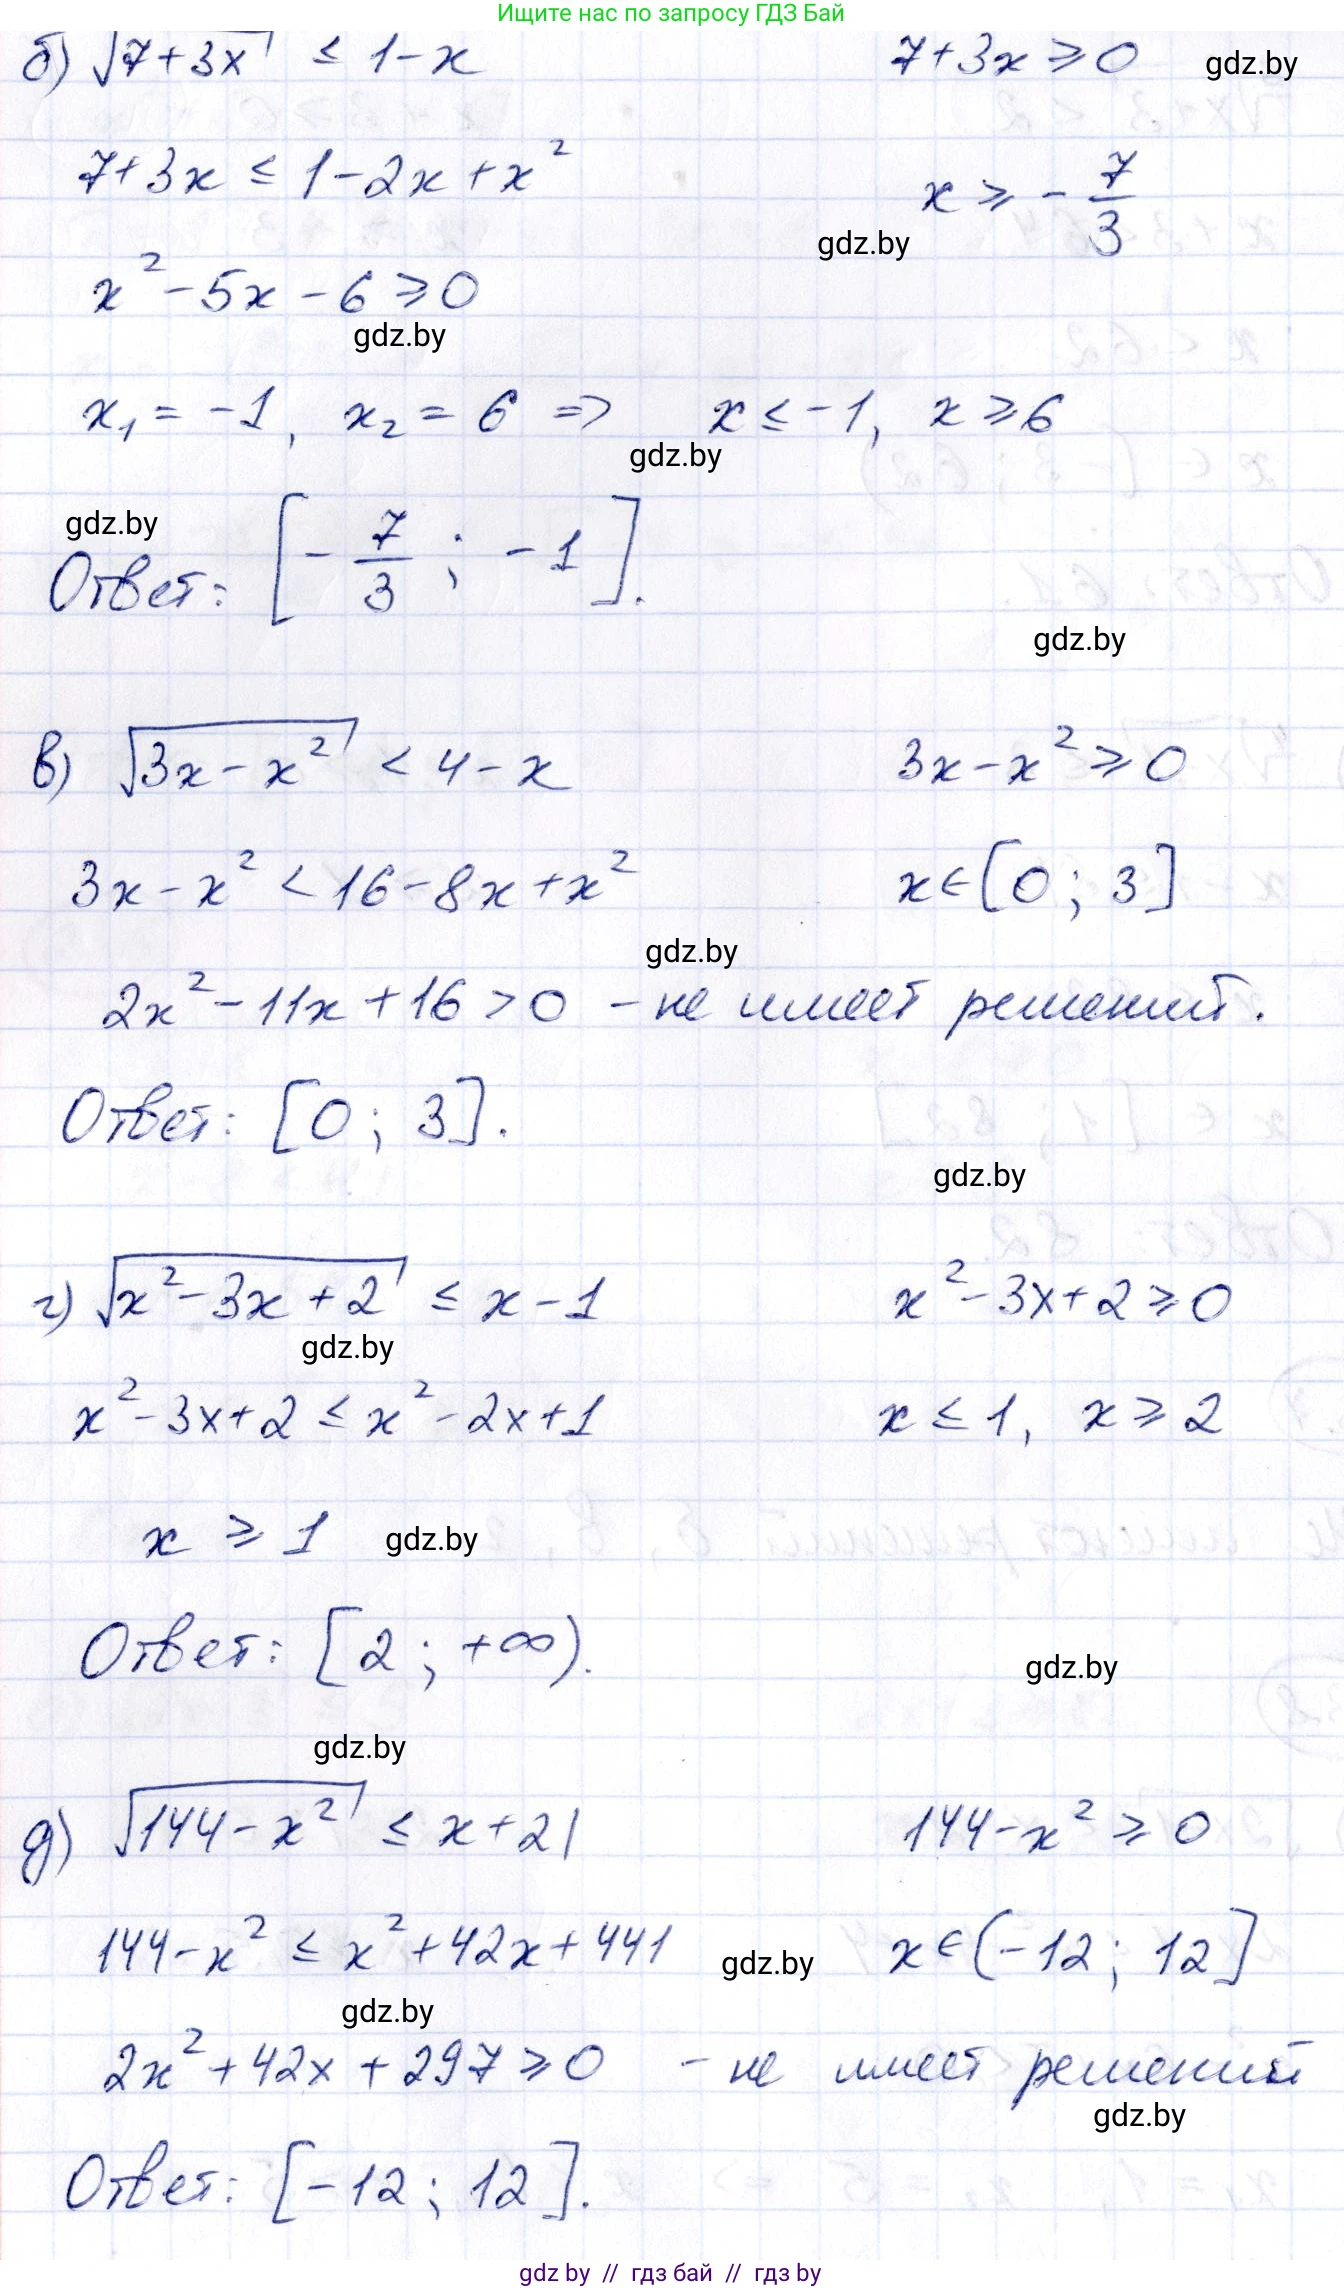 Ищите нас по запросу ГДЗ Бай
б) √(7+3x) ≤ 1-x 7+3x ≥ 0 gdz.by
7+3x ≤ 1-2x+x² x ≥ -7/3
gdz.by
x²-5x-6 ≥ 0
gdz.by
x₁ = -1, x₂ = 6 => x ≤ -1, x ≥ 6
gdz.by
gdz.by
Ответ: [-7/3; -1].
gdz.by
в) √(3x-x²) < 4-x 3x-x² ≥ 0
3x-x² < 16-8x+x² x ∈ [0; 3]
gdz.by
2x²-11x+16 > 0 - не имеет решений.
Ответ: [0; 3].
gdz.by
г) √(x²-3x+2) ≤ x-1 x²-3x+2 ≥ 0
gdz.by
x²-3x+2 ≤ x²-2x+1 x ≤ 1, x ≥ 2
x ≥ 1 gdz.by
Ответ: [2; +∞).
gdz.by
gdz.by
д) √(144-x²) ≤ x+21 144-x² ≥ 0
144-x² ≤ x²+42x+441 gdz.by x ∈ (-12; 12]
gdz.by
2x²+42x+297 ≥ 0 - не имеет решений
gdz.by
Ответ: [-12; 12].
gdz by // гдз бай // гдз by